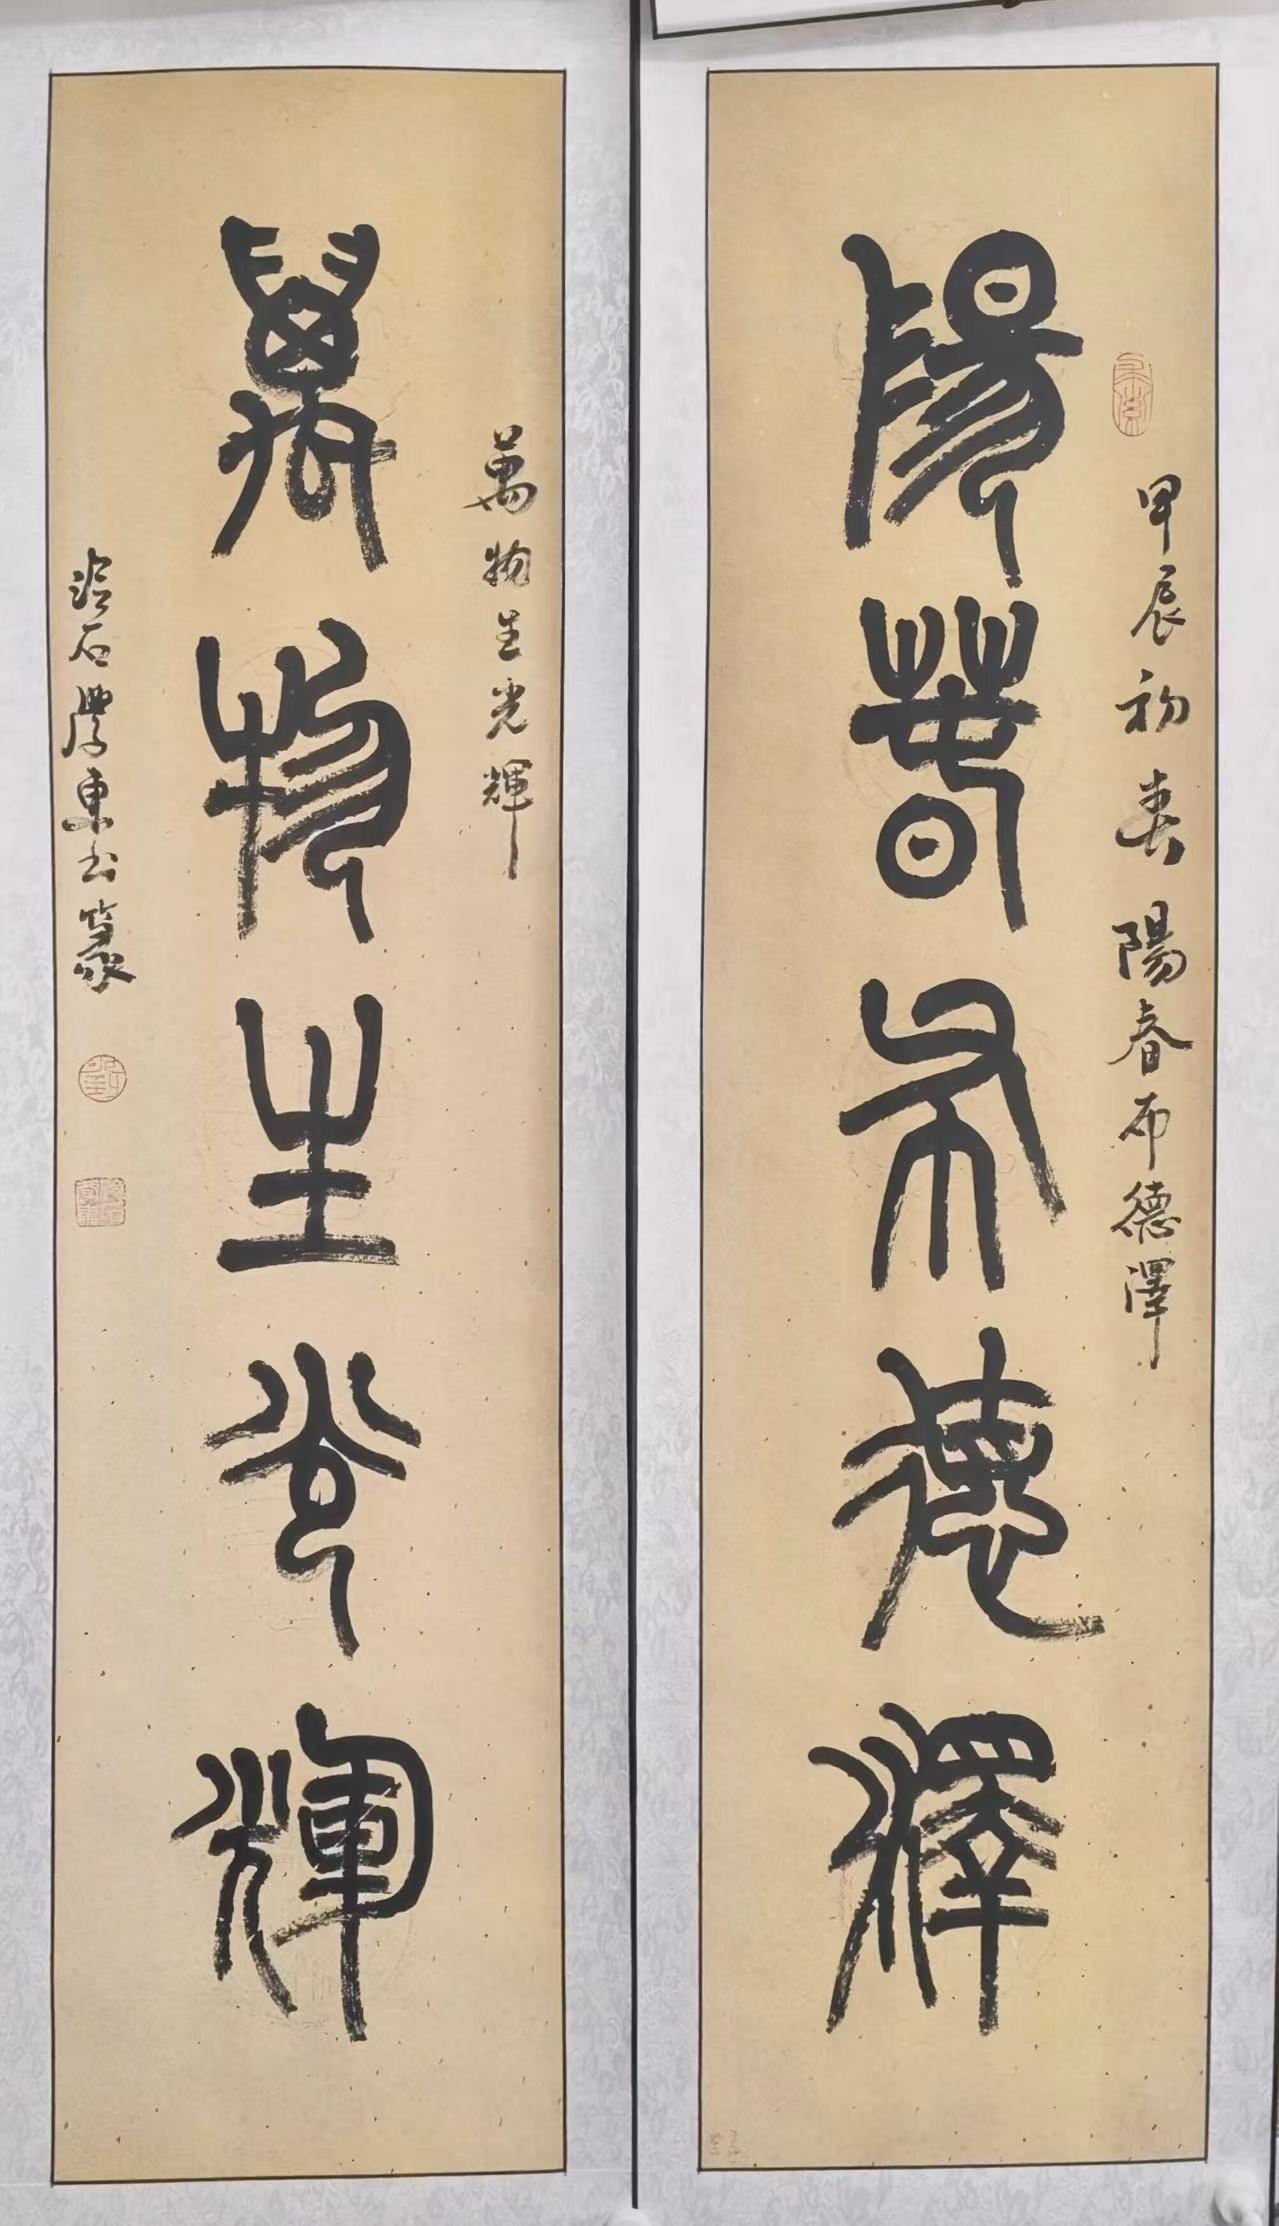 甲辰初春陽春布德澤
陽春布德澤
萬物生光輝
萬物生光輝
石學東书篆